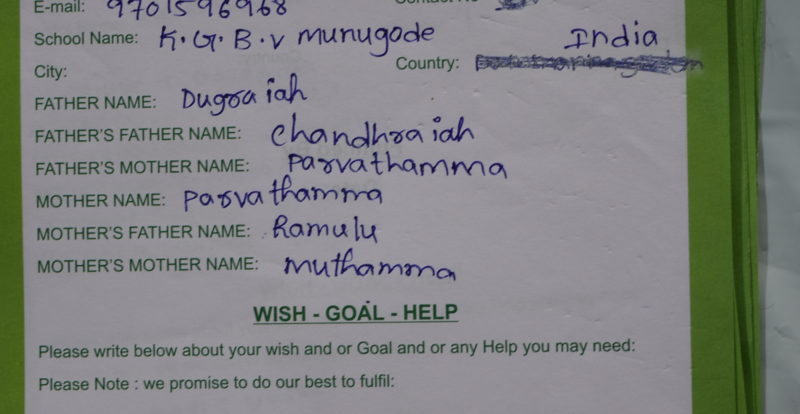 E-mail: 9701596968
School Name: K.G.B.V munugode India
City: Country:
FATHER NAME: Dugraiah
FATHER'S FATHER NAME: Chandhraiah
FATHER'S MOTHER NAME: Parvathamma
MOTHER NAME: Parvathamma
MOTHER'S FATHER NAME: Ramulu
MOTHER'S MOTHER NAME: muthamma
WISH - GOAL - HELP
Please write below about your wish and or Goal and or any Help you may need:
Please Note : we promise to do our best to fulfil: